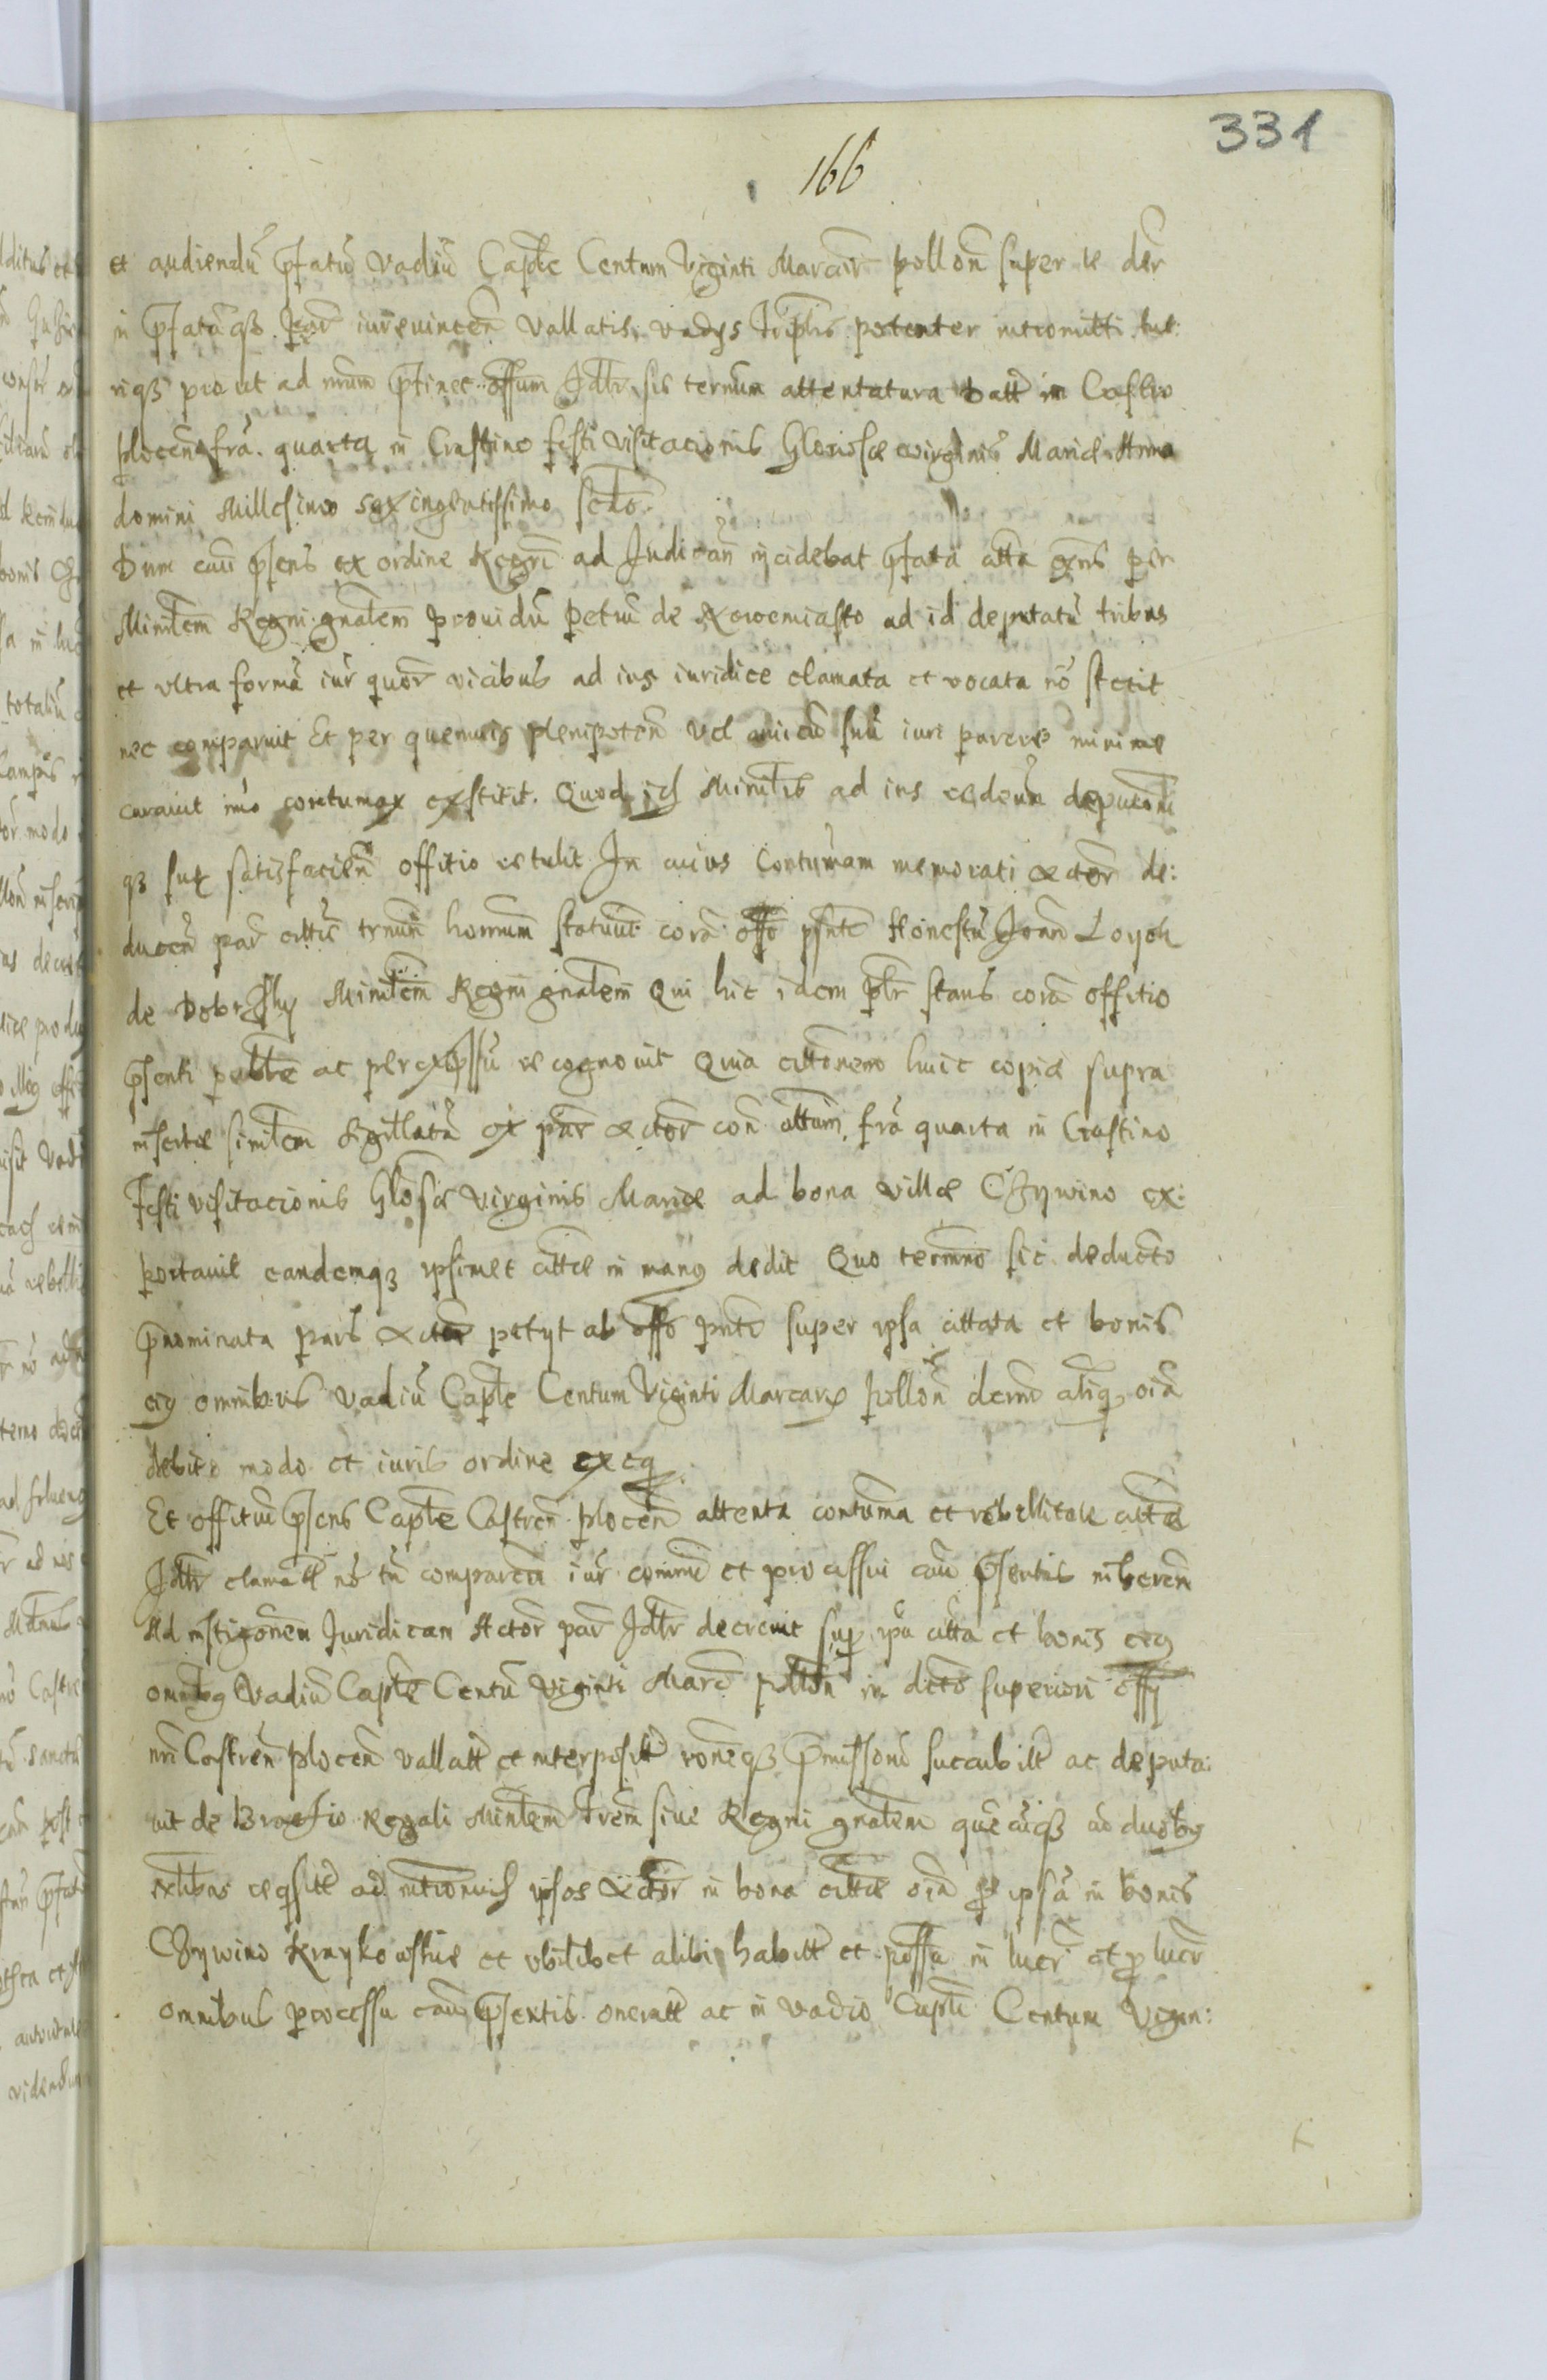 331
166
et audiendũ p̃fatũ vadiũ Cap̃tle Centum Viginti Marcar̃ pollon̄ super te der̃
in p̃fatãqȝ iureuincen̄ vallatis vadys potenter intromitti
riqȝ prout ad nr̃um p̃tinet offum sis termĩn attentatura Datt̃ in Castro
plocen̄ fr̃a quarta in Crastino festi Visitacionis Gloriosæ virginis Mariæ Anno
domini Millesimo sexingentissimo scdo.
Dum cau p̃sens ex ordine Regr̃i ad Judican̄ incidebat p̃fata citta per
Minrlem Regni gn̄alem prouidũ Petrũ de Nowemiasto ad id deputatũ tribus
et vltra formã iur̃ quor̃ vicibus ad ius iuridice clamata et vocata nõ stetit
nec comparuit Et per quemuis plenipoten̄ vel amicũ suũ iuri parere minime
curauit imo contumax exstitit. Quod Minrlis ad ius
qȝ suæ satisfacien̄ offitio retulit In cuius Contumam memorati Actor̃ de:
ducen̄ par̃ cittis trnũm horrnum statuit corã offo pn̄te Honestũ Joan̄
de Minrlem Regni gn̄alem Qui hic idem pltr̃ stans corã offitio
p̃senti ac per recognouit Quia cittonem huic copiæ supra
insertæ simlem sigillatã ex par̃ Actor̃ con̄ cittam, fr̃a quarta in Crastino
Festi visitacionis Glosæ Virginis Mariæ ad bona villæ Czywino ex:
portauit eandemqȝ ipsimet cittæ in manus dedit Quo termno sic deducto
p̃nominata pars Actor̃ petyt ab offo pn̄te super ipsa cittata et bonis
eiq omnibus vadiũ Cap̃tle Centum Viginti Marcarũ pollon̄ decerni aliaqȝ oĩa
debito modo et iuris ordine exeq
Et offitiũ p̃sens Cap̃tle Castren̄ plocen̄ attenta contuma et rebellitate cittæ
Jdtr̃ clamatt̃ nõ tñ comparen̄ iur̃ commi et processui cau p̃sentis inheren̄
Ad instigonem Juridicam Actor̃ par̃ Jdtr̃ decreuit sup ipã citta et bonis eiq
omnibq Vadiũ Cap̃tle Centũ Viginti Marc̃ pollon̄ in dicto superiori offy
nr̃i Castren̄ plocen̄ vallatt̃ et interpositt̃ ronẽqȝ p̃missorũ succubitt̃ ac deputa:
uit de Brachio Regali Minrlem Trem siue Regni gn̄alem quẽcũqȝ ad duobq
nobilibus reqsitt̃ ad ipsos Actor̃ in bona cittæ oĩa p ipsã in bonis
Czywino Kraykowskie et vbilibet alibi habitt̃ et possa in lucr̃ et p lucr̃
omnibus processu cau p̃sentis oneratt̃ ac in vadio Cap̃tli Centum Vigin: